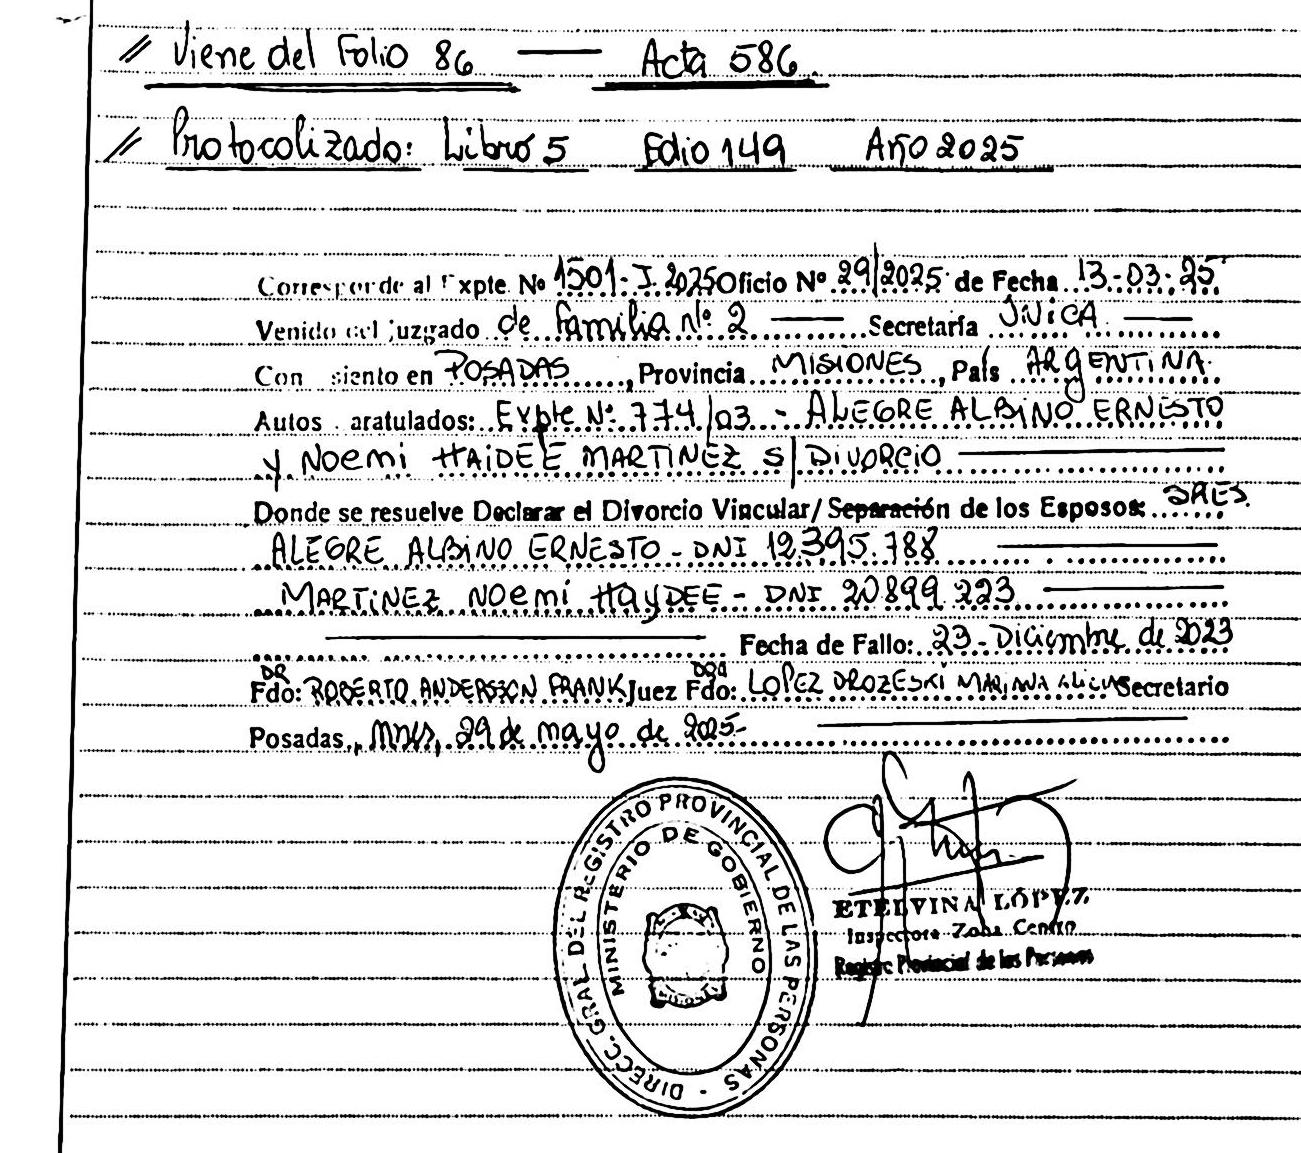 // Viene del Folio 86 — Acta 586.
// Protocolizado: Libro 5 Folio 149 Año 2025
Corresponde al Expte. Nº 1501-I-2025 Oficio Nº 29/2025 de Fecha 13-03-25
Venido del juzgado de familia Nº 2 — Secretaría ÚNICA —
Con siento en POSADAS, Provincia MISIONES, País ARGENTINA.
Autos caratulados: Expte Nº 774/03 - ALEGRE ALBINO ERNESTO
y NOEMI HAIDEE MARTINEZ S/ DIVORCIO —
Donde se resuelve Declarar el Divorcio Vincular/ Separación de los Esposos: SRES.
ALEGRE ALBINO ERNESTO - DNI 12.395.788 —
MARTINEZ NOEMI HAYDEE - DNI 20.899.223 —
— Fecha de Fallo: 23 - Diciembre de 2023
DR DRA
Fdo: ROBERTO ANDERSSON FRANK Juez Fdo: LOPEZ DROZESKI MARIANA ALICIA Secretario
Posadas, Mnes, 29 de mayo de 2025- —
DIRECC. GRAL. DEL REGISTRO PROVINCIAL DE LAS PERSONAS -
MINISTERIO DE GOBIERNO
ETELVINA LÓPEZ
Inspectora Zona Centro
Registro Provincial de las Personas